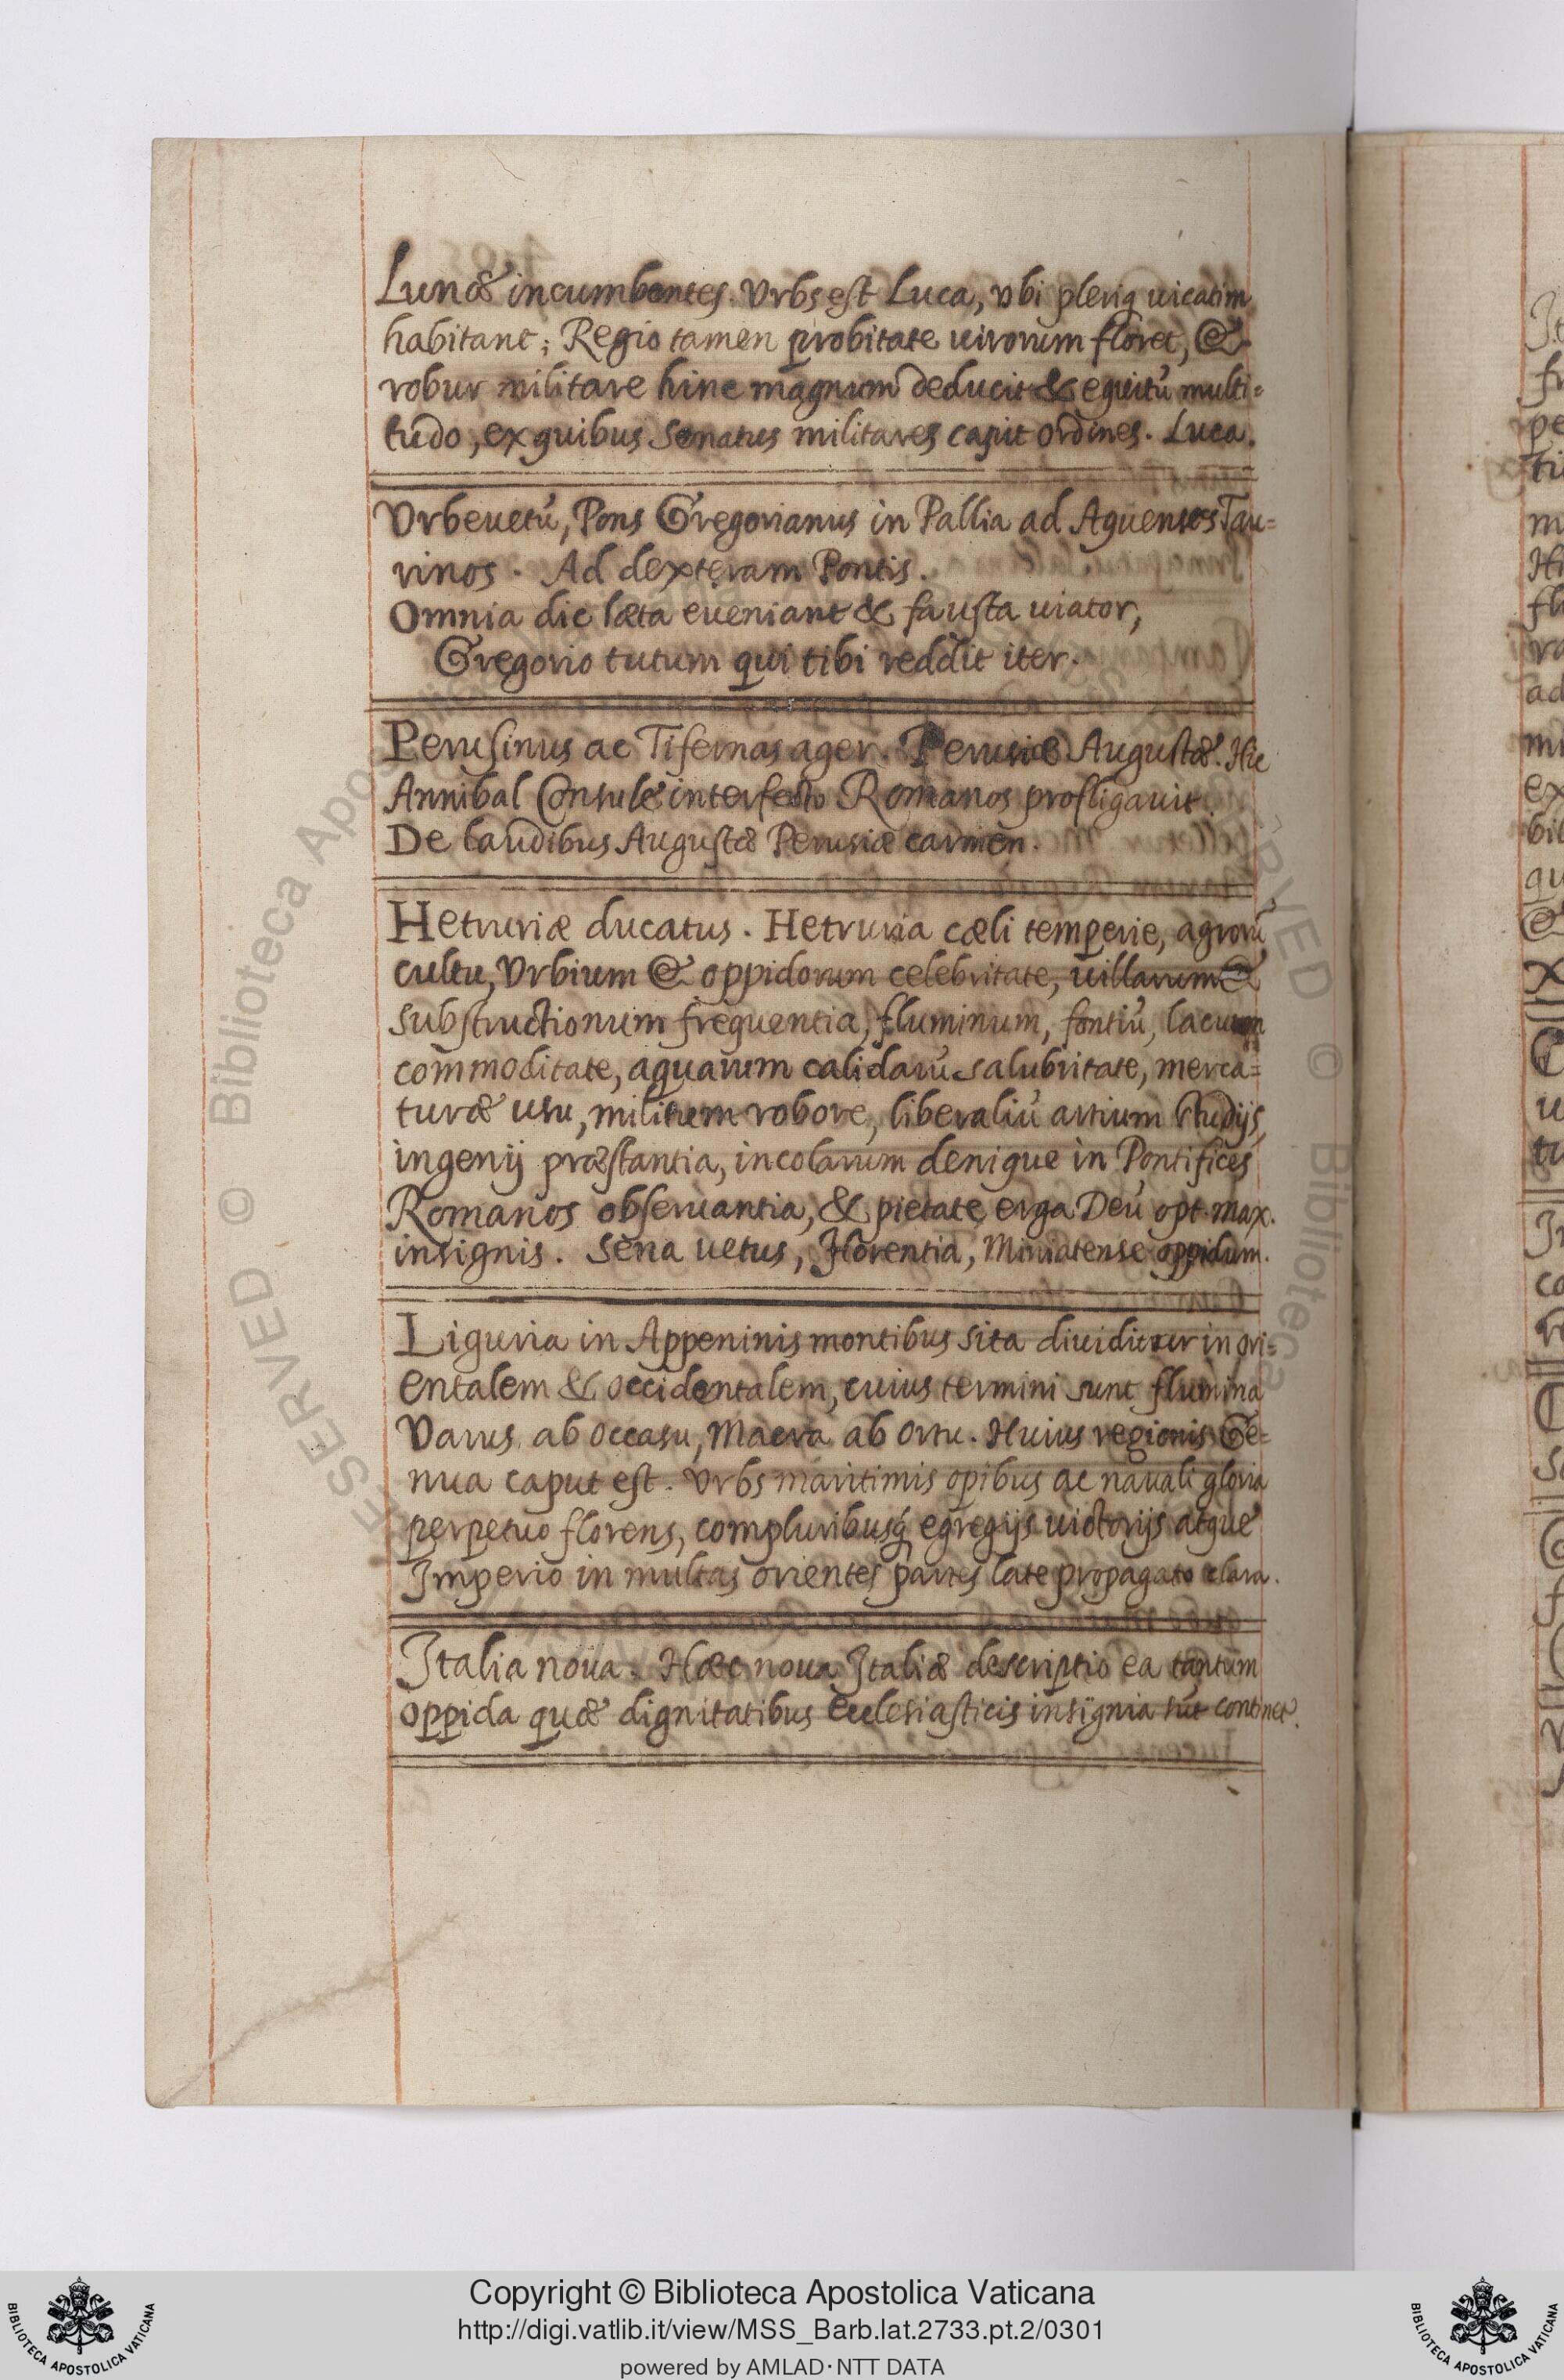 Lunæ incumbentes. Vrbs est Luca, vbi pleriq uicatim
habitant; Regio tamen probitate uirorum floret, &
robur militare hinc magnum deducit & equitū multi=
tudo, ex quibus Senatus militares capit ordines. Luca.
Vrbeuetū, Pons Gregorianus in Pallia ad Aquenses Tau=
rinos. Ad dexteram Pontis.
Omnia dic læta eueniant & fausta uiator,
Gregorio tutum qui tibi reddit iter.
Perusinus ac Tifernas ager. Perusiæ Augustæ. Hic
Annibal Consule interfecto Romanos profligauit.
De laudibus Augustæ Perusiæ carmen.
Hetruriæ ducatus. Hetruria cæli temperie, agrorū
cultu, Vrbium & oppidorum celebritate, uillarum &
substructionum frequentia, fluminum, fontiū, lacuum
commoditate, aquarum calidarū salubritate, merca=
turæ usu, militum robore, liberaliū artium studijs,
ingenij præstantia, incolarum denique in Pontifices
Romanos obseruantia, & pietate erga Deū opt. max.
insignis. Sena uetus, Florentia, Miniatense oppidum.
Liguria in Appeninis montibus sita diuiditur in ori=
entalem & occidentalem, cuius termini sunt flumina
Varus ab occasu, Macra ab ortu. Huius regionis Ge=
nua caput est. Vrbs maritimis opibus ac nauali gloria
perpetuo florens, compluribusq́ egregijs uictorijs atque
Imperio in multas orientes partes late propagato clara.
Italia noua. Hæc noua Italiæ descriptio ea tantum
oppida quæ dignitatibus Ecclesiasticis insignia sūt continet.
Copyright © Biblioteca Apostolica Vaticana
http://digi.vatlib.it/view/MSS_Barb.lat.2733.pt.2/0301
powered by AMLAD·NTT DATA
BIBLIOTECA APOSTOLICA VATICANA
BIBLIOTECA APOSTOLICA VATICANA